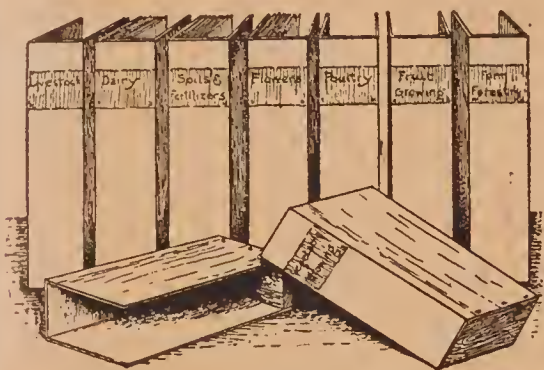 Livestock
Dairy
Soils &
Fertilizers
Flowers
Poultry
Fruit
Growing
Farm
Forestry
Vegetable
Growing